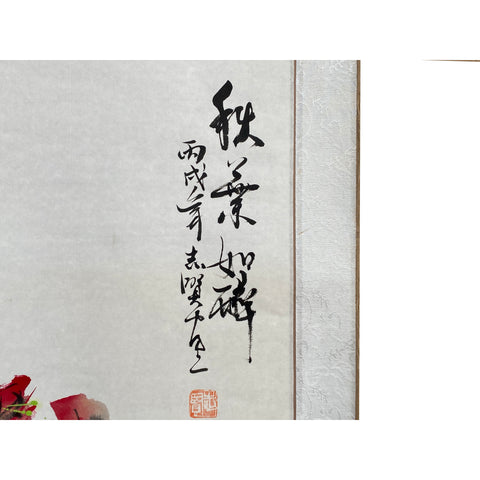 秋葉如醉
丙戌年志賢
志賢